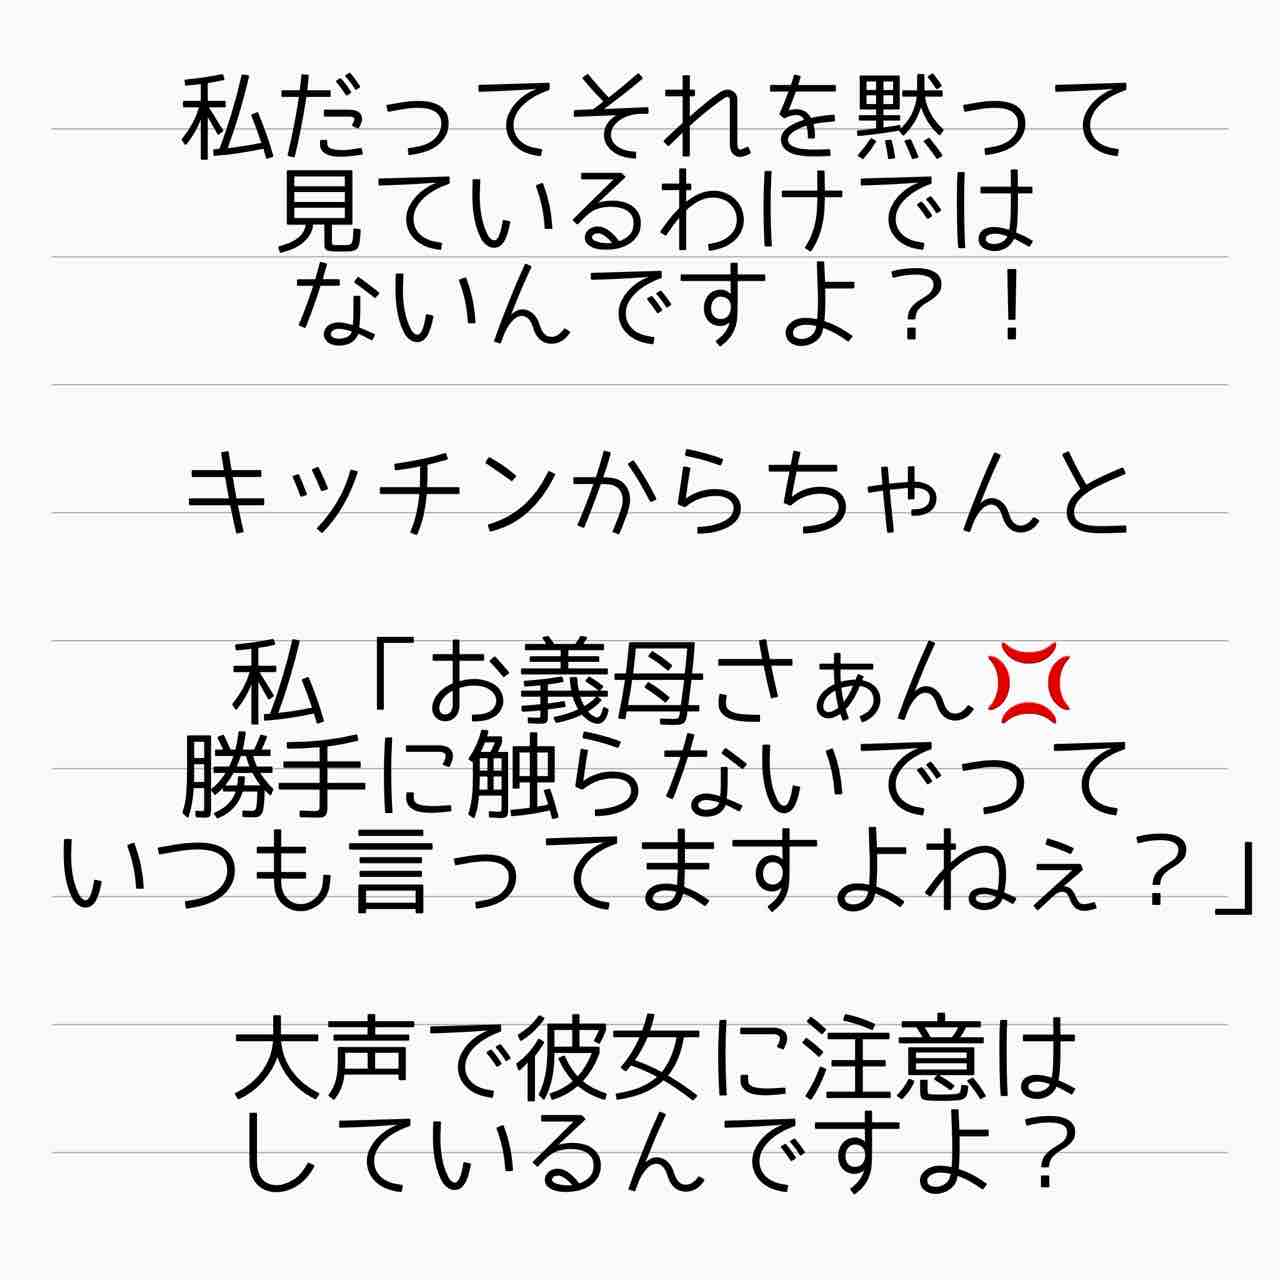 私だってそれを黙って
見ているわけでは
ないんですよ？！
キッチンからちゃんと
私「お義母さぁん💢
勝手に触らないでって
いつも言ってますよねぇ？」
大声で彼女に注意は
しているんですよ？